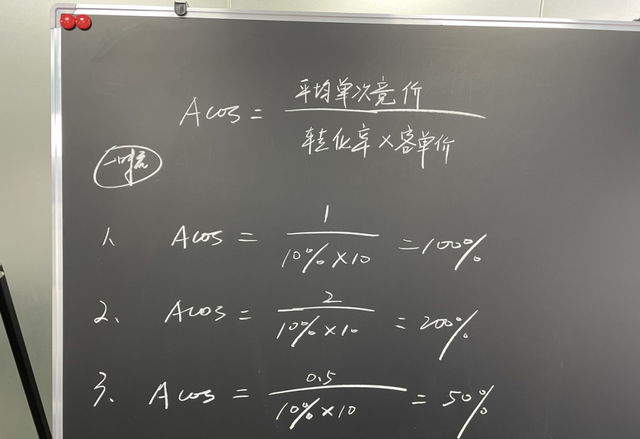 Acos = 平均单次竞价 / 转化率×客单价
1、 Acos = 1 / 10%×10 = 100%
2、 Acos = 2 / 10%×10 = 200%
3、 Acos = 0.5 / 10%×10 = 50%